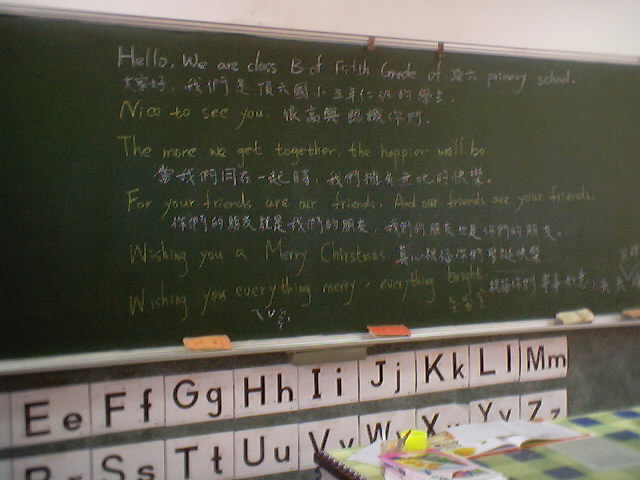 Hello, We are class B of Fifth Grade of 頂六 primary school.
大家好，我們是頂六國小五年仁班的學生.
Nice to see you. 很高興認識你們.
The more we get together, the happier we'll be.
當我們同在一起時，我們擁有無比的快樂.
For your friends are our friends. And our friends are your friends.
你們的朋友就是我們的朋友，我們的朋友也是你們的朋友.
Wishing you a Merry Chirstmas. 真心祝福你們聖誕快樂
Wishing you everything merry, everything bright.
Ee Ff Gg Hh Ii Jj Kk Ll Mm
Ss Tt Uu Vv Ww X Yy Zz